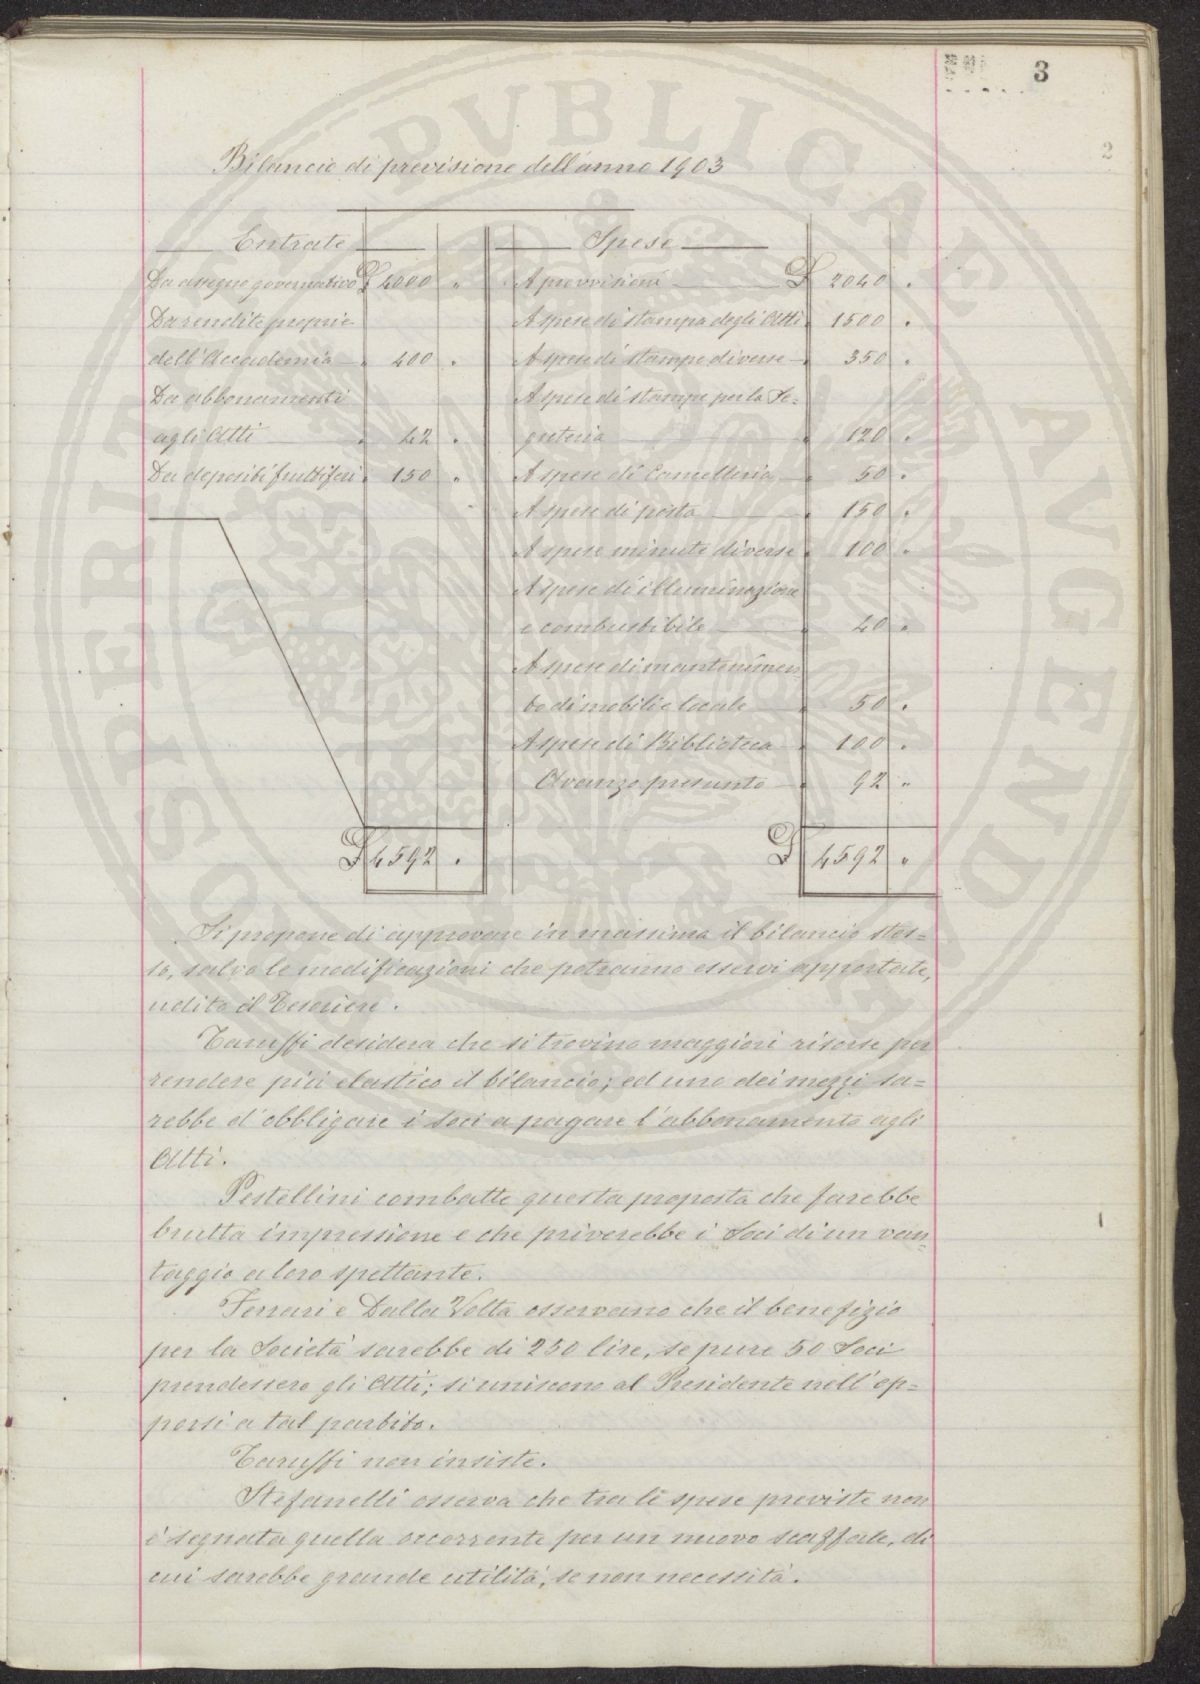 3
2
Bilancio di previsione dell'anno 1903
Entrate
Da assegno governativo £ 4000 "
Da rendite proprie
dell'Accademia " 400 "
Da abbonamenti
agli Atti " 42 "
Da depositi fruttiferi " 150 "
£ 4592 "
Spese
A provvisioni £ 2040 "
A spese di stampa degli Atti " 1500 "
A spese di stampe diverse " 350 "
A spese di stampe per la Se=
greteria " 120 "
A spese di Cancelleria " 50 "
A spese di posta " 150 "
A spese minute diverse " 100 "
A spese di illuminazione
e combustibile " 40 "
A spese di mantenimen
to di mobili e locale " 50 "
A spese di Biblioteca " 100 "
Avanzo presunto " 92 "
£ 4592 "
Si propone di approvare in massima il bilancio stes=
so, salvo le modificazioni che potranno esservi apportate,
udito il Tesoriere.
Taruffi desidera che si trovino maggiori risorse per
rendere più elastico il bilancio; ed uno dei mezzi sa=
rebbe d'obbligare i soci a pagare l'abbonamento agli
Atti.
Pestellini combatte questa proposta che farebbe
brutta impressione e che priverebbe i Soci di un van=
taggio a loro spettante.
Ferrari e Dalla Volta osservano che il benefizio
per la Società sarebbe di 250 lire, se pure 50 Soci
prendessero gli Atti; si uniscono al Presidente nell'op=
porsi a tal partito.
Taruffi non insiste.
Stefanelli osserva che tra le spese previste non
è segnata quella occorrente per un nuovo scaffale, di
cui sarebbe grande utilità, se non necessità.
VOSPERITATI PVBLICAE AVGENDAE